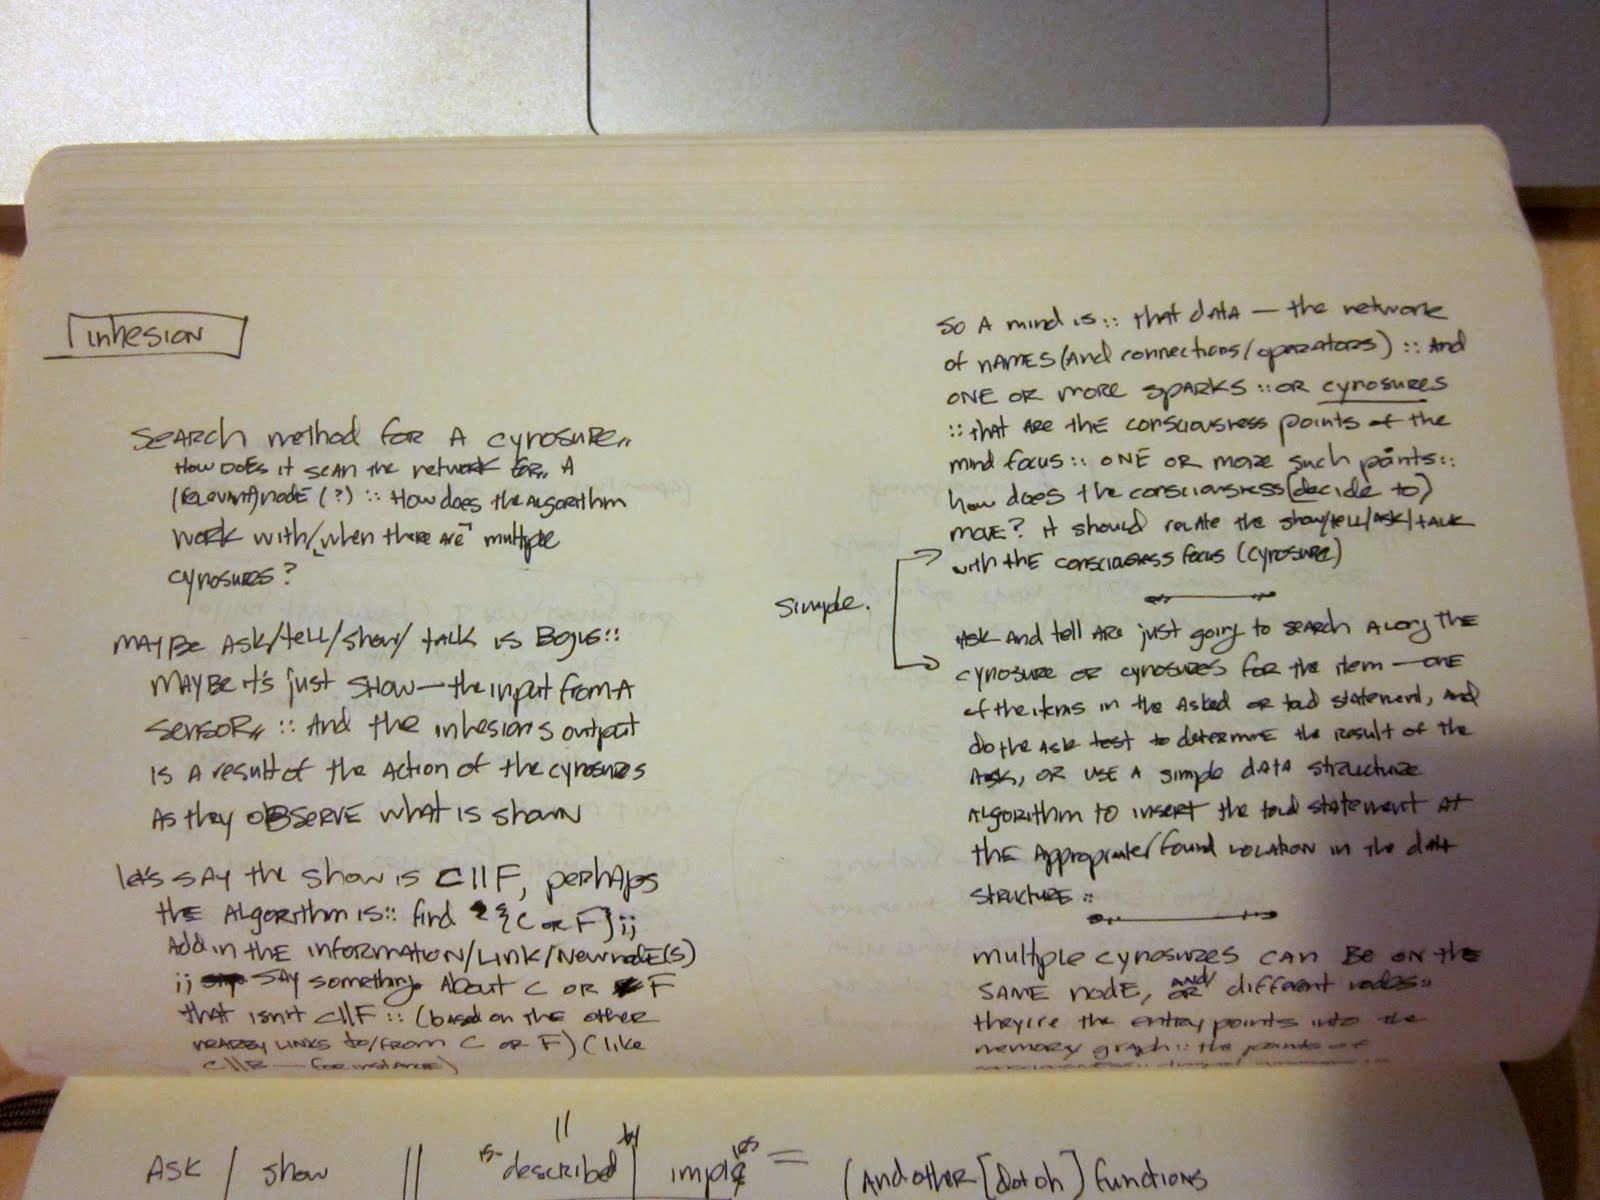 inhesion
SEARCH method for A cynosure,,
How does it scan the network for,, A
(relevant) node (?) :: How does the algorithm
work with/when there are multiple
cynosures?
MAYBE ASK/tell/show/talk is Bogus::
MAYBE it's just SHOW — the input from A
sensor,, :: And the inhesion's output
is A result of the action of the cynosures
As they OBSERVE what is shown
let's say the show is C||F, perhaps
the Algorithm is:: find {C or F};;
Add in the information/Link/New node(s)
;; say something About C or F
that isn't C||F :: (based on the other
nearby links to/from C or F) (like
C||R — for instance)
Simple.
So A mind is:: that data — the network
of NAMES (And connections/operators) :: And
ONE OR more SPARKS :: OR cynosures
:: that ARE the consciousness points of the
mind focus:: ONE OR more such points::
how does the consciousness (decide to)
move? it should relate the show/tell/ask/talk
with the consciousness focus (cynosure)
Ask And tell Are just going to search Along the
cynosure or cynosures for the item — one
of the items in the Asked or told statement, And
do the Ask test to determine the result of the
Ask, or use A simple data structure
Algorithm to insert the told statement At
the Appropriate/found location in the data
structure::
multiple cynosures can Be on the
SAME node, and/or different nodes::
they're the entry points into the
memory graph:: the points of
ASK / show || is-described by | implies = (And other [Dotoh] functions
||